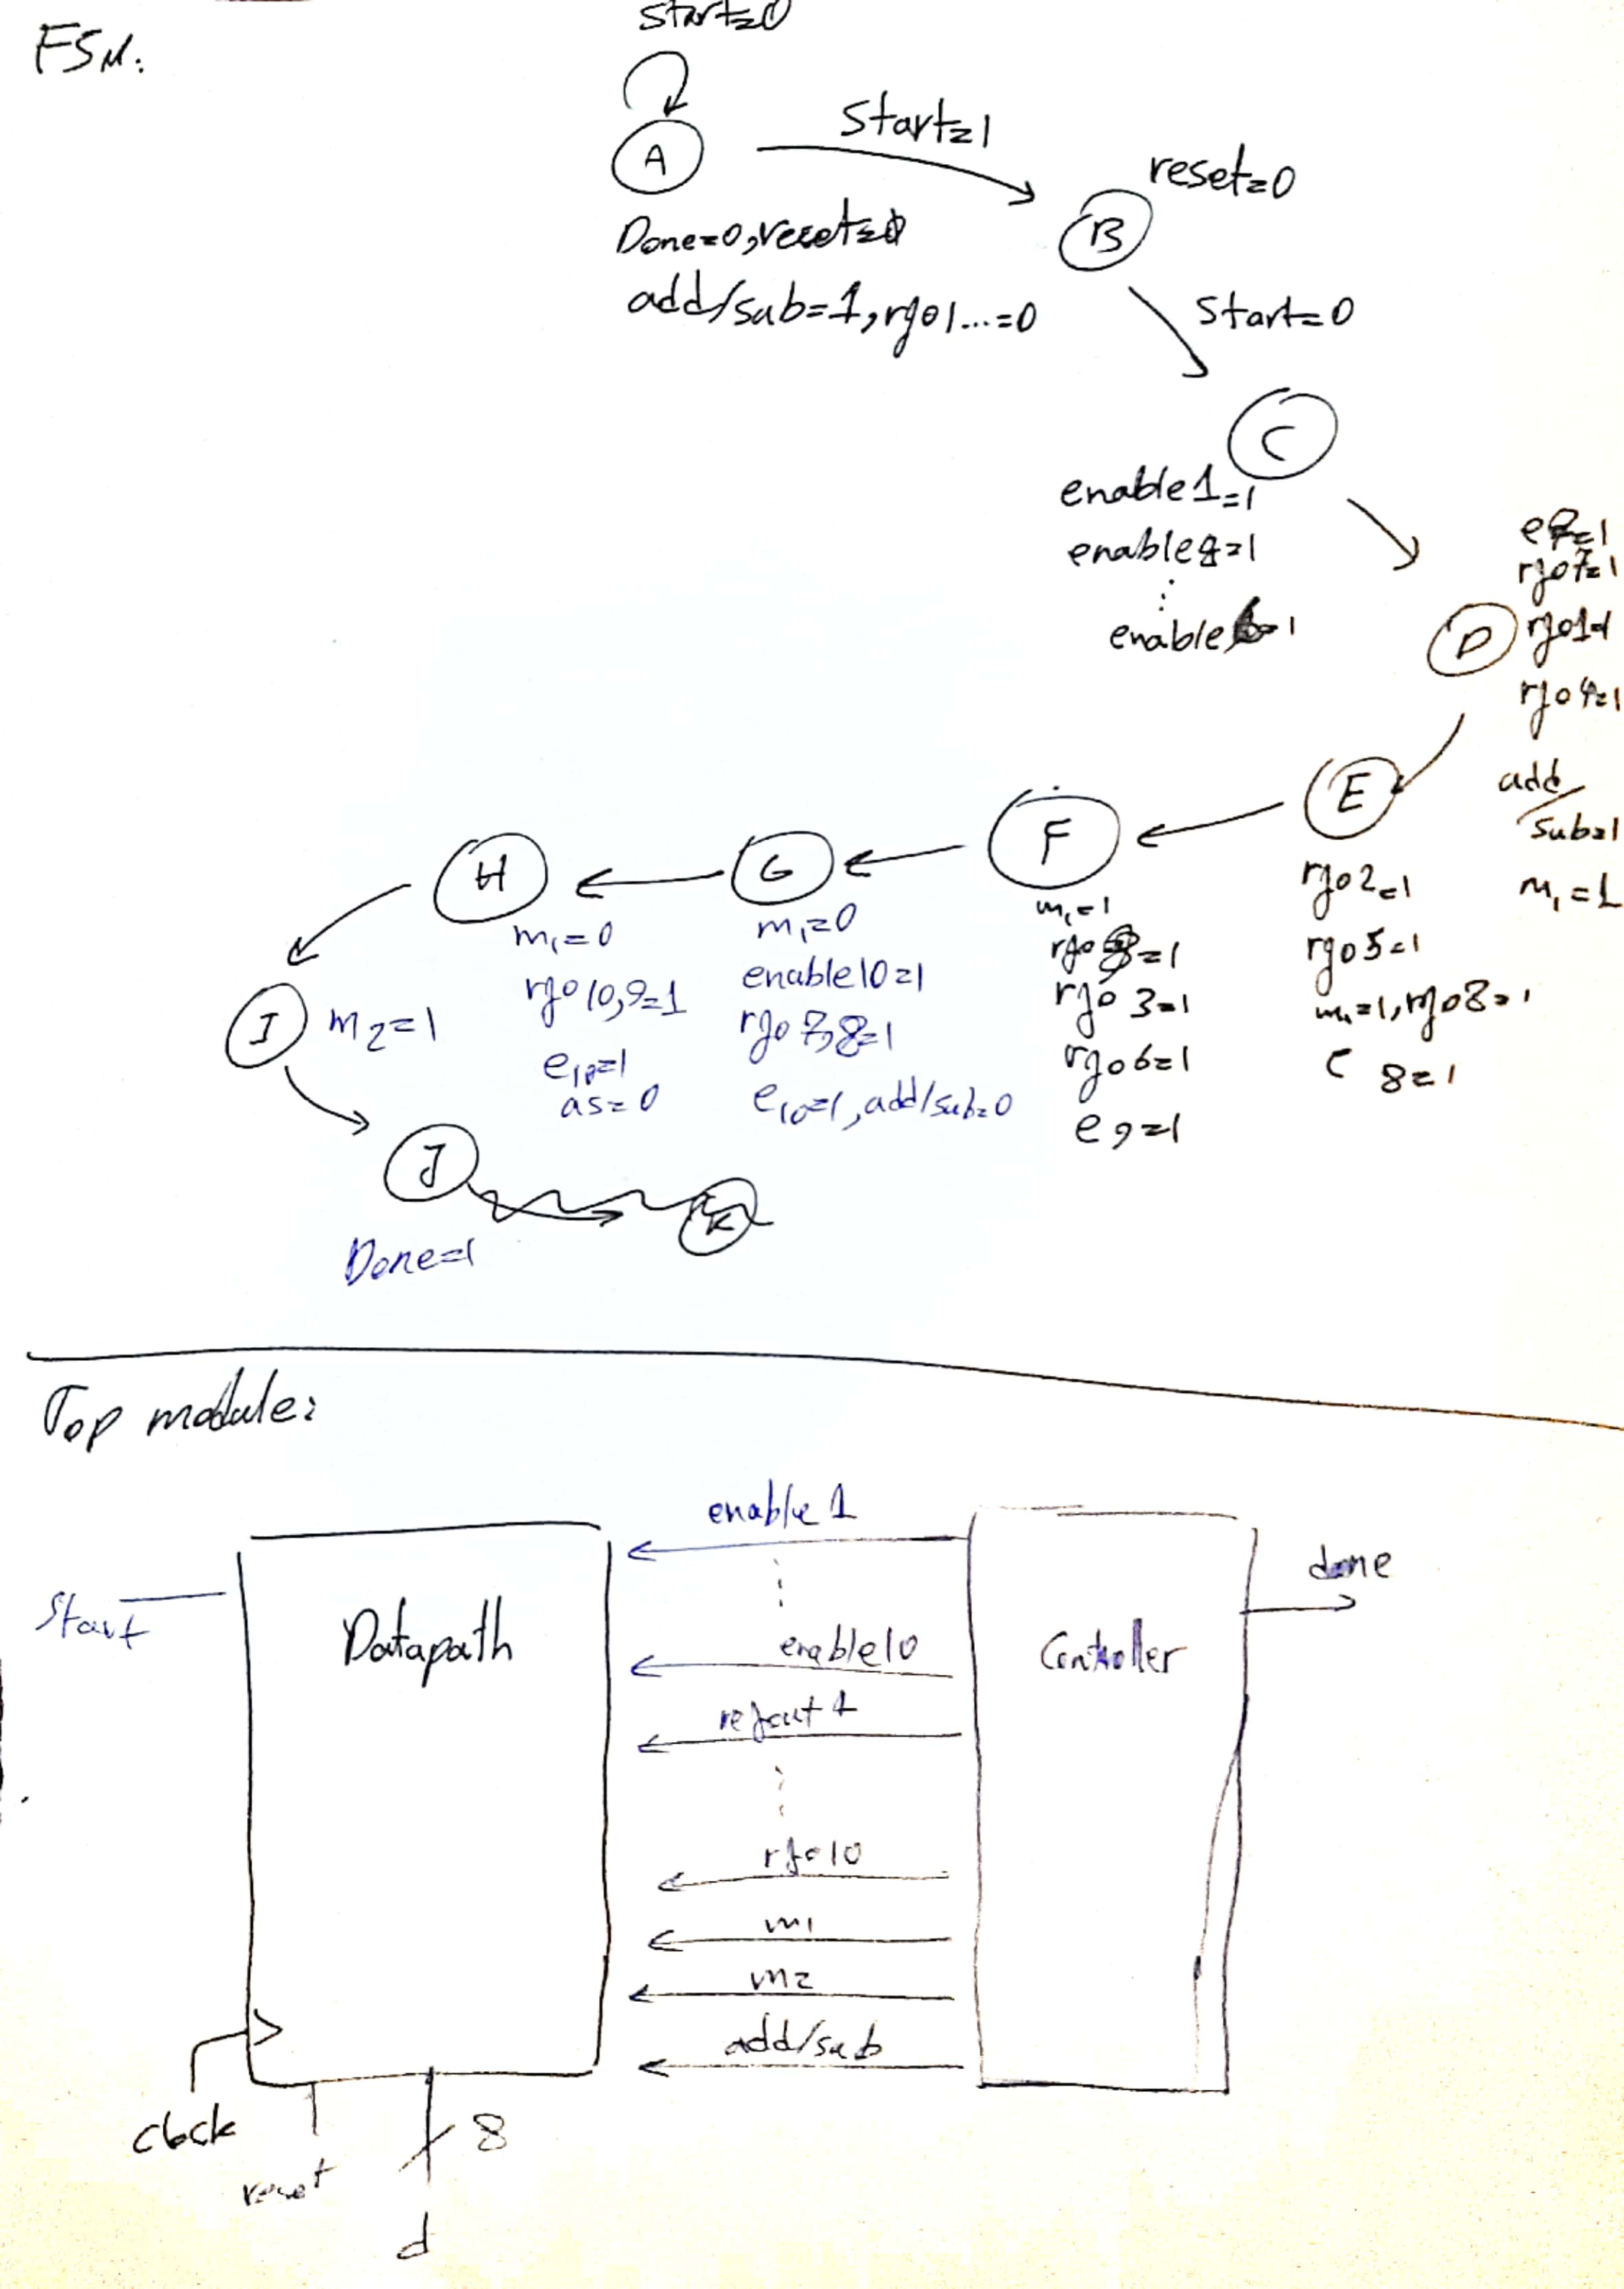 FSM:
start=0
A
Start=1
Done=0, reset=0
add/sub=1, rgo1...=0
reset=0
B
Start=0
C
enable1=1
enable2=1
⋮
enable6=1
D
e7=1
rgo7=1
rgo1=1
rgo4=1
add/
sub=1
m1=1
E
rgo2=1
rgo5=1
m1=1, rgo8=1
e 8=1
F
m1=1
=1
rgo 3=1
rgo6=1
e9=1
G
m1=0
enable10=1
rgo7,8=1
e10=1, add/sub=0
H
m1=0
rgo10,9=1
e10=1
as=0
I
m2=1
J
Done=1
K
Top module:
Start
Datapath
Controller
enable 1
enable10
regout 1
rgo10
m1
m2
add/sub
done
clock
reset
8
d